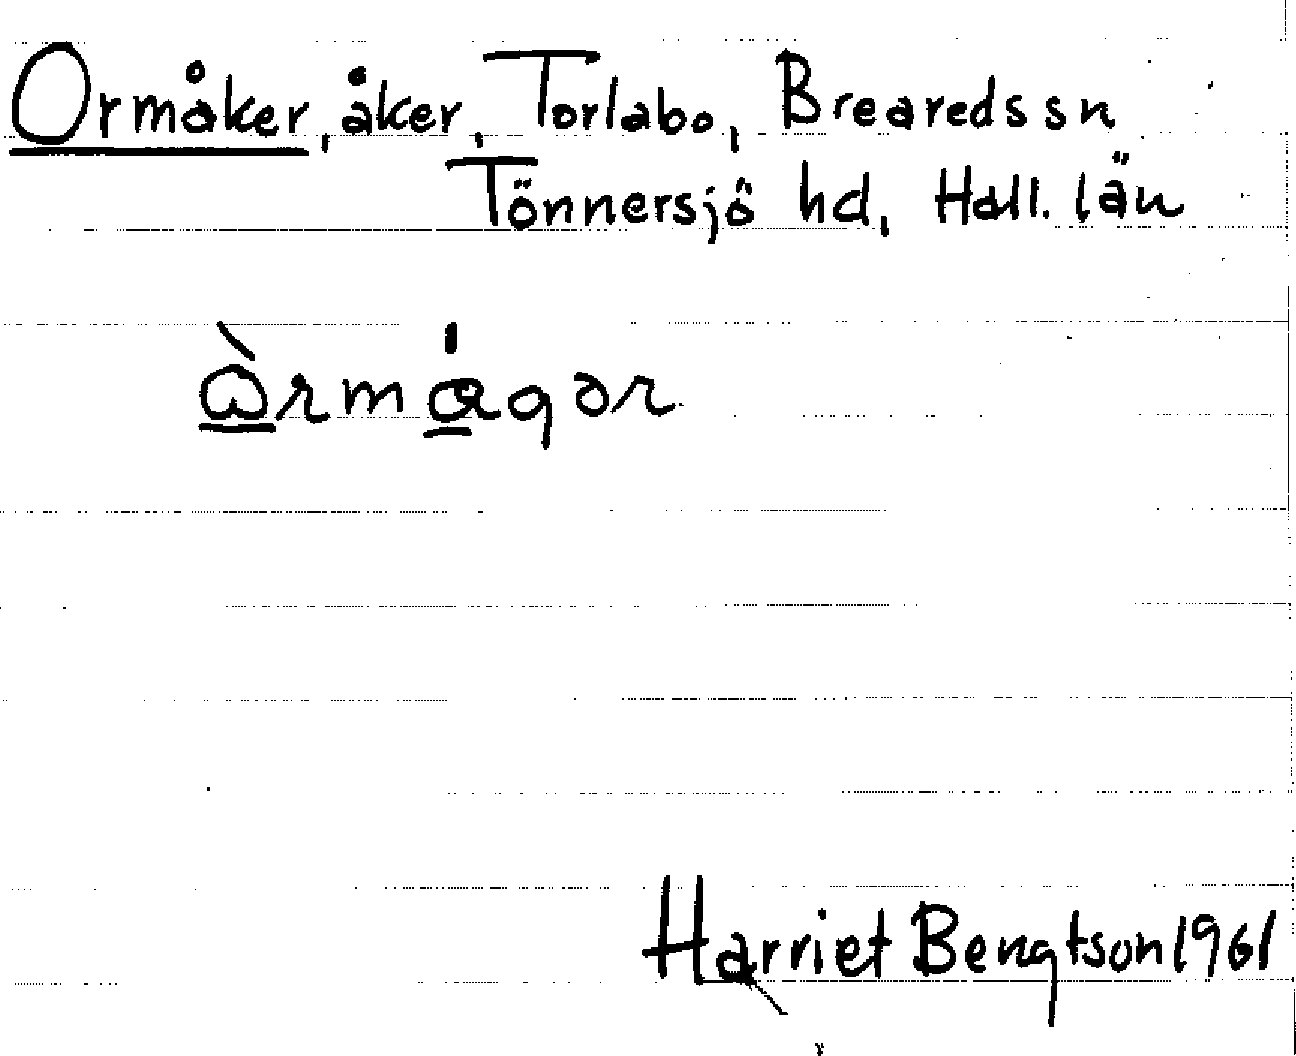 Ormåker, åker, Torlabo, Breareds sn
Tönnersjö hd, Hall. län
Harriet Bengtson 1961